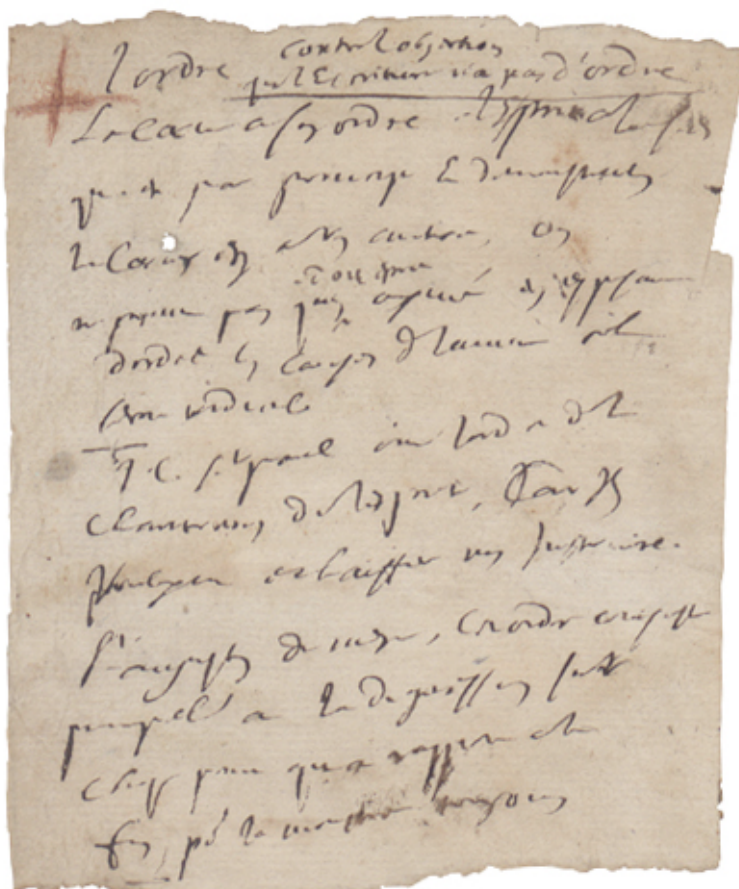 L'ordre contre l'objection
que l'Escriture n'a pas d'ordre
Le coeur a son ordre, l'esprit a le sien
qui est par principe et demonstration
le coeur en a un autre, on
ne prouve pas qu'on doit estre aimé en exposant
d'ordre les causes de l'amour cela
seroit ridicule
J.C. St Paul ont l'ordre de la
charité non de l'esprit, Car ils
vouloient eschauffer non Instruire.
St Augustin de mesme, Cet ordre consiste
principalt a la digression sur
chaque point qui a rapport a la
fin, pr la monstrer toujours